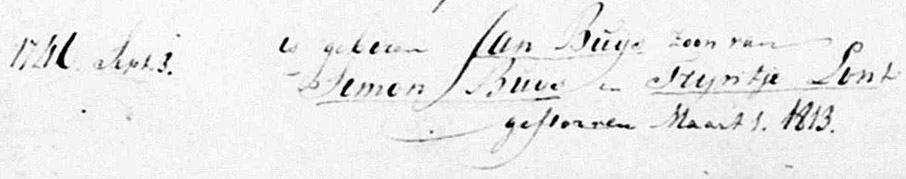 1741. Sept. 3. is geboren Jan Buys zoon van
Siemon Buys en Tryntje Lont
gestorven Maart 1. 1813.